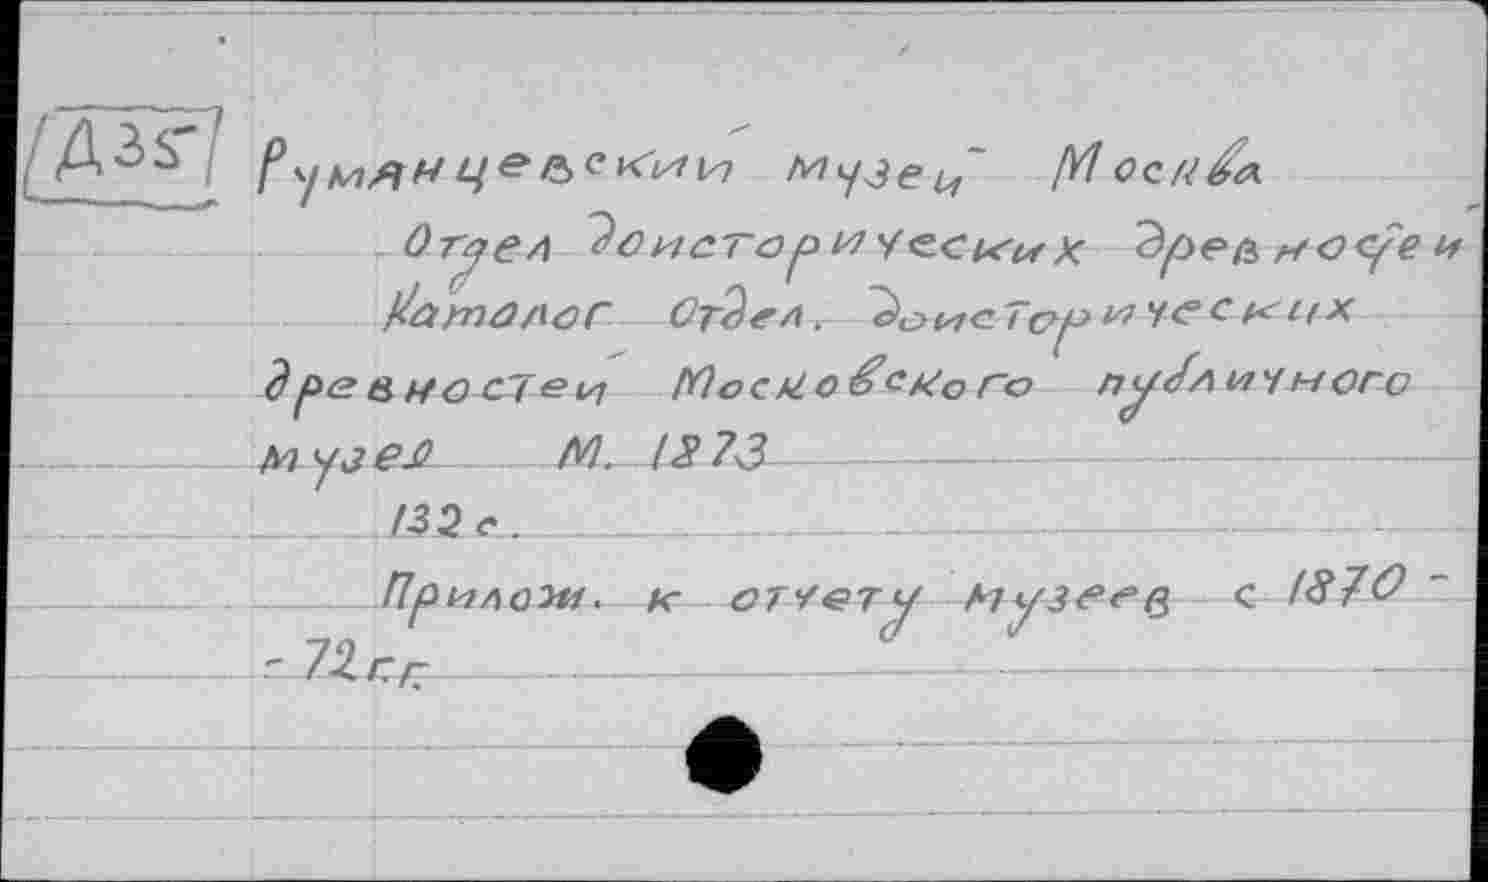 Д35 Румянцевский музей Москва
Отдел доисторических древностей
Каталог Отдел. доисторических
древностей Московского публичного
музея М. 1873
132 с.
Прилож. к отчету музеев с 1870 -
- 72 г.г.